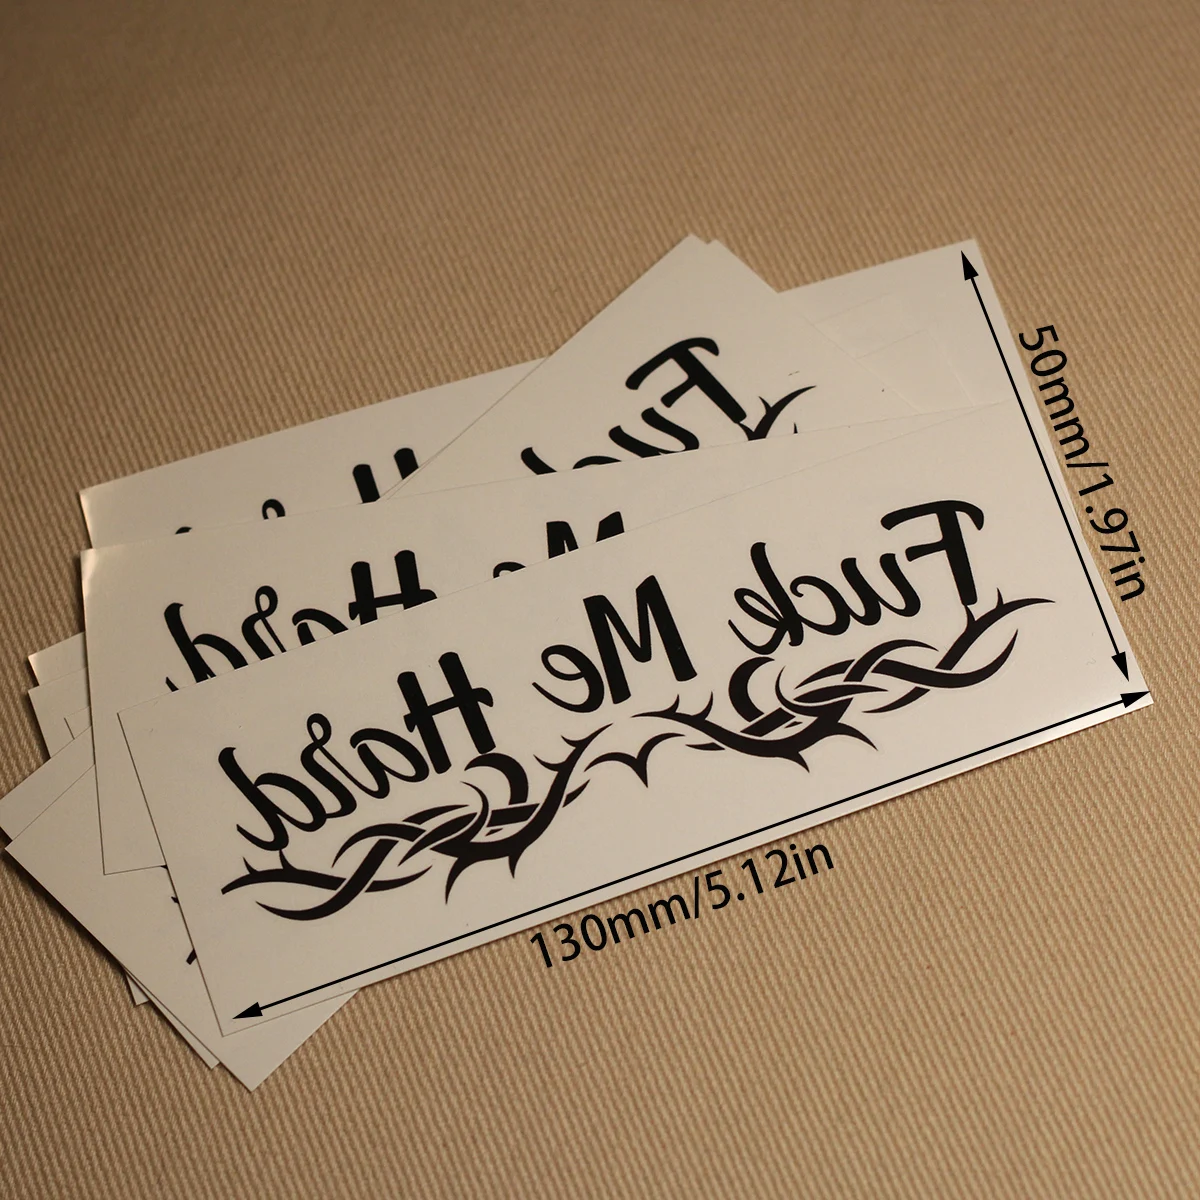 Fuck
H
Me
Hard
Fuck Me Hard
50mm/1.97in
130mm/5.12in